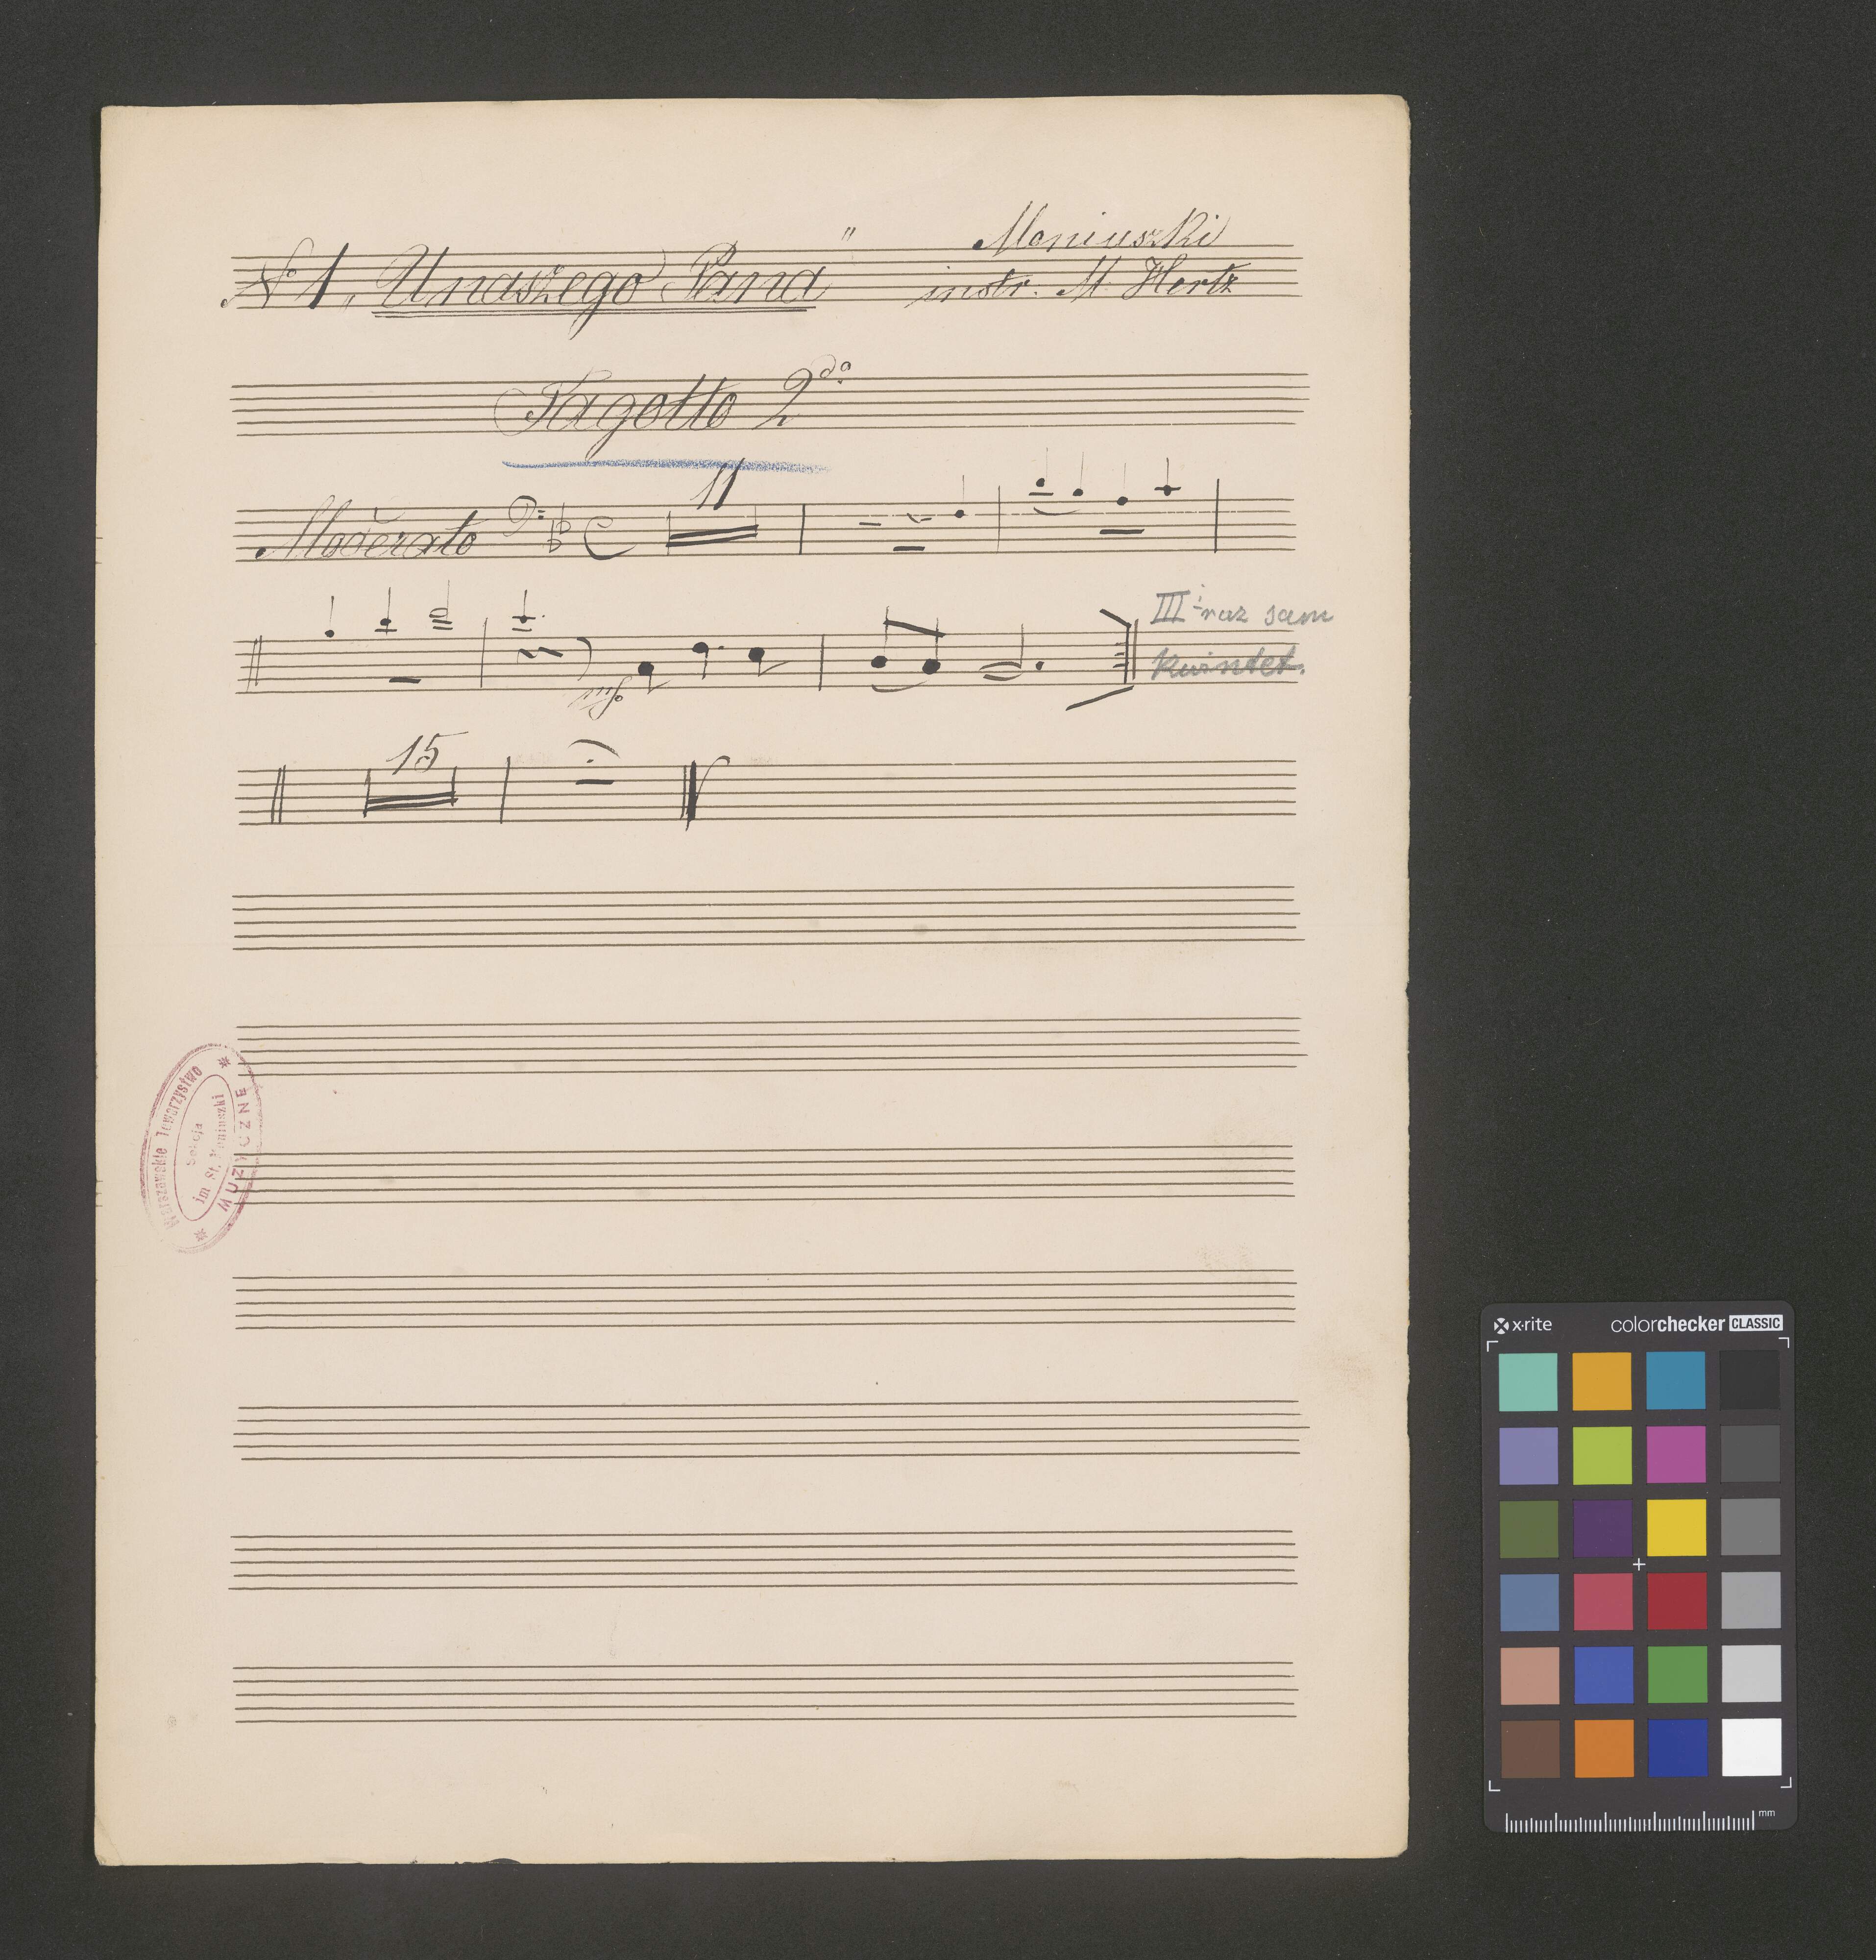 № 1 „Unaszego Pana"
Moniuszki
instr. M. Hertz
Fagotto 2do
Moderato
11
III-raz sam
kwintet.
15
Warszawskie Towarzystwo
MUZYCZNE
Sekcja
im St. Moniuszki
x-rite
colorchecker CLASSIC
mm